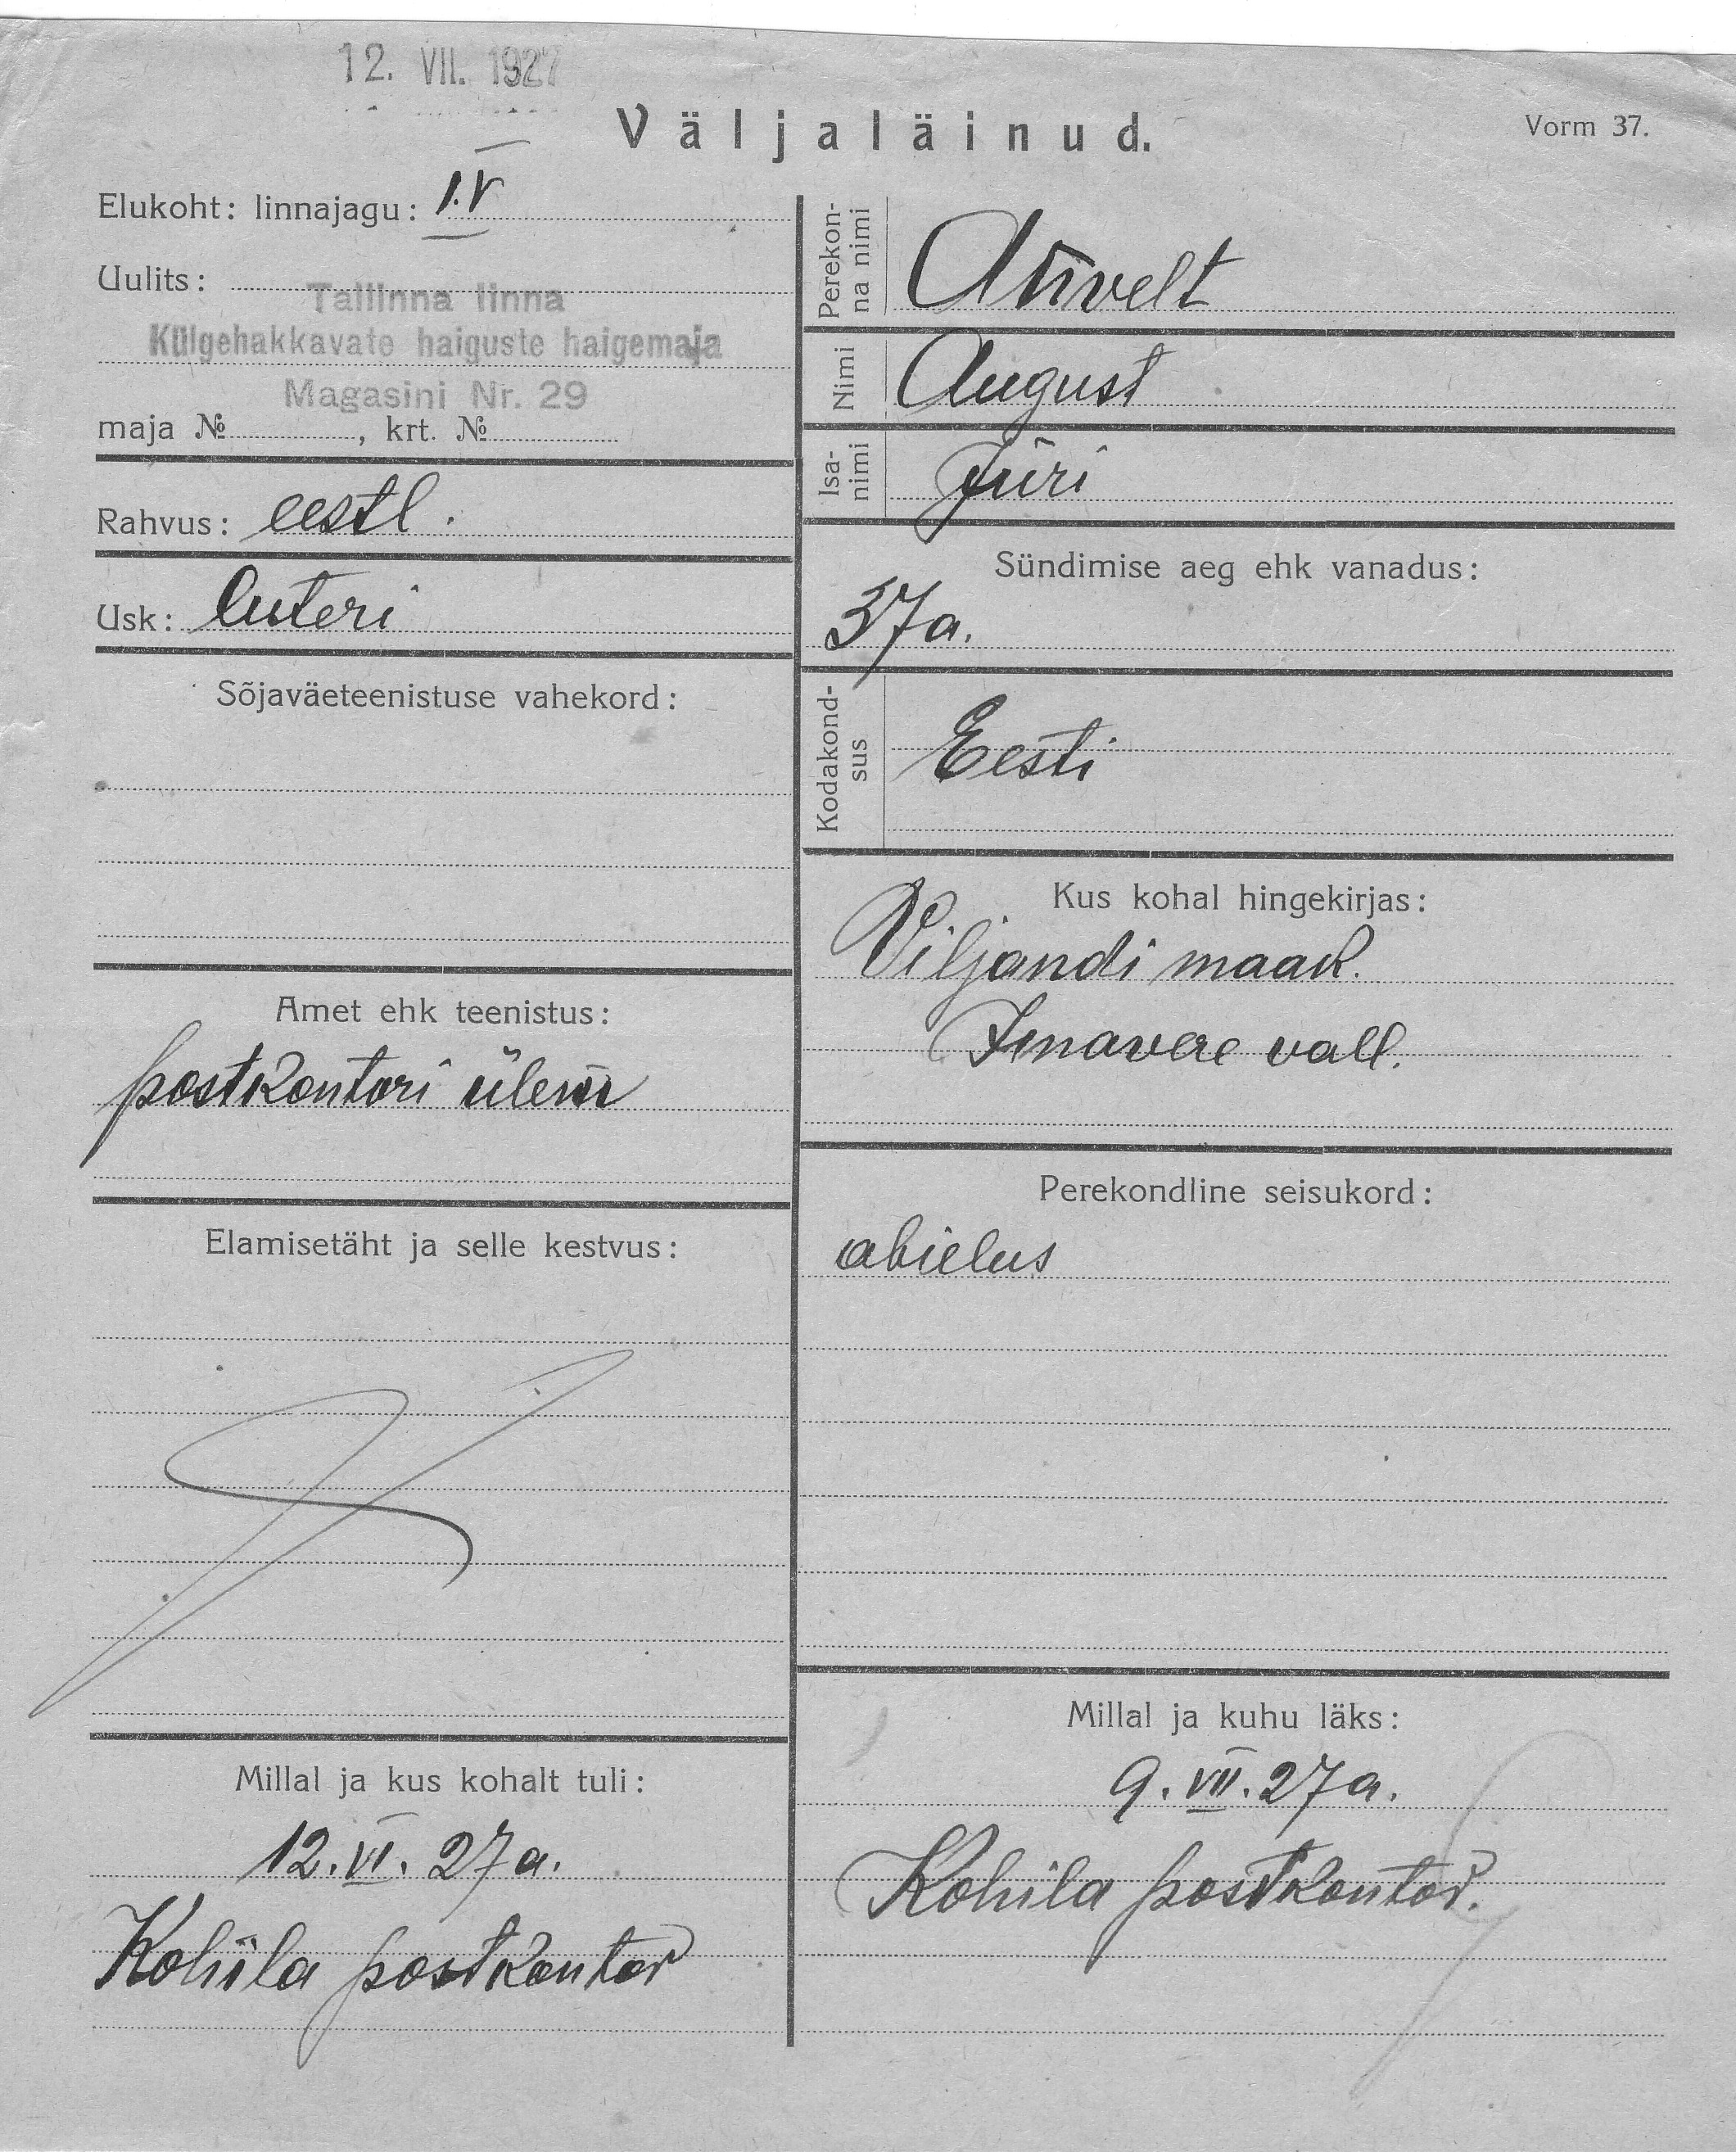 12. VII. 1927
Väljaläinud.
Vorm 37.
Elukoht: linnajagu: I.V
Uulits:
Tallinna linna
Külgehakkavate haiguste haigemaja
Magasini Nr. 29
maja № , krt. №
Rahvus: eestl.
Usk: luteri
Sõjaväeteenistuse vahekord:
Amet ehk teenistus:
postkontori ülem
Elamisetäht ja selle kestvus:
Millal ja kus kohalt tuli:
12. VI. 27 a.
Kohila postkontor
Perekon-
na nimi
Nimi August
Isa-
nimi Jüri
Sündimise aeg ehk vanadus:
37 a.
Kodakond-
sus Eesti
Kus kohal hingekirjas:
Viljandi maak.
Imavere vall.
Perekondline seisukord:
abielus
Millal ja kuhu läks:
9. VII. 27 a.
Kohila postkontor.